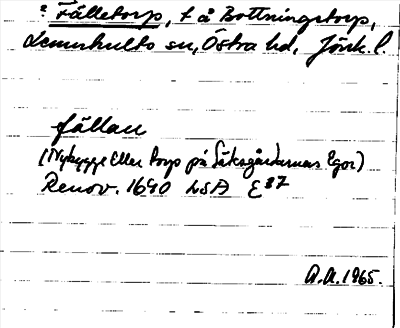 = Fälletorp, t å Bottningstorp,
Lemnhults sn, Östra hd, Jönk. l.
fällan
(Nybygge Eller Torp på Säteegårdarnas Egor)
Renov. 1690 LSA E 37
A.A. 1965.